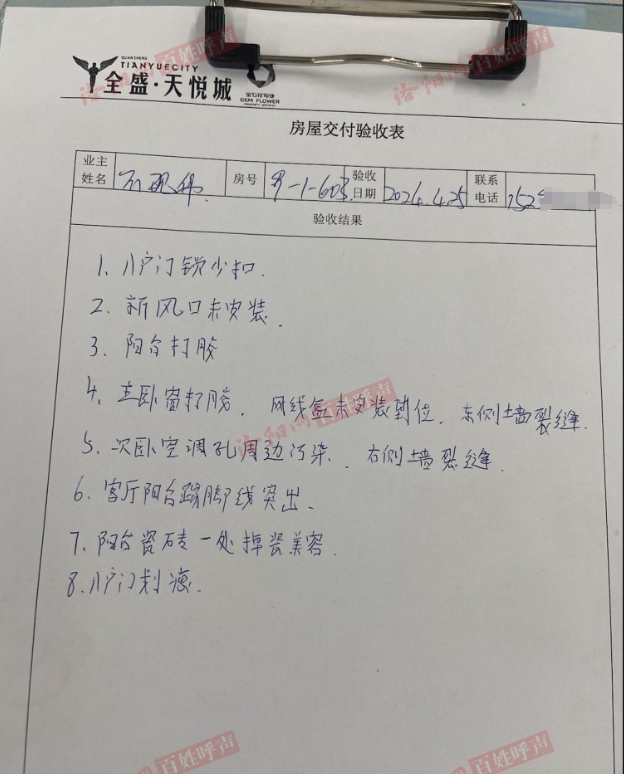 QUANSHENG
TIANYUECITY
全盛·天悦城
宝石花物业
GEM FLOWER
洛阳网 百姓呼声
房屋交付验收表
业主姓名 房号 9-1-603 验收日期 2024.4.25 联系电话 152
验收结果
1、入户门锁少扣.
2、新风口未安装.
3、阳台打胶
4、主卧窗打胶. 网线盒未安装到位. 东侧墙裂缝.
洛阳网 百姓呼声
5、次卧空调孔周边污染. 右侧墙裂缝.
6、客厅阳台踢脚线突出.
7、阳台瓷砖一处掉瓷美容.
8.入户门划痕.
百姓呼声
洛阳网 百姓呼声